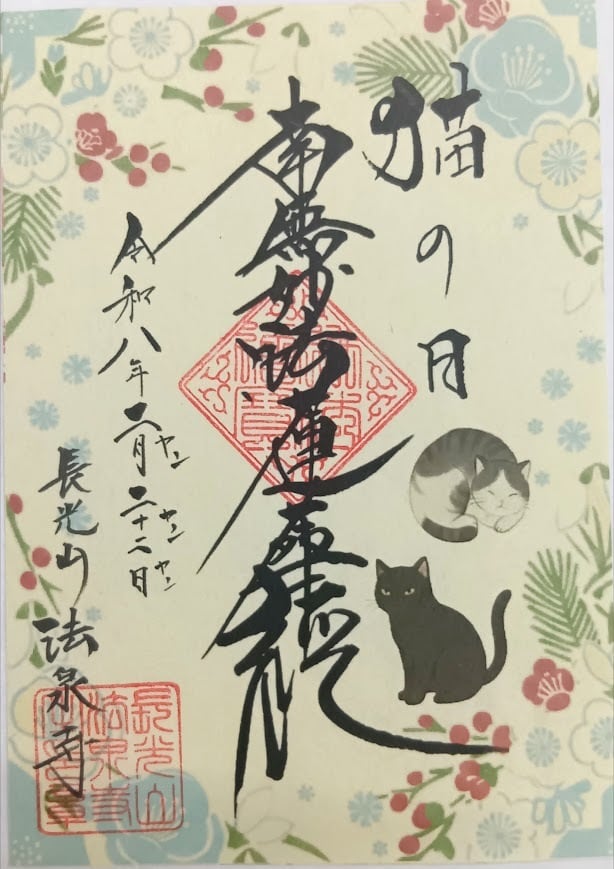 猫の日
南無妙法蓮華経
令和八年二月二十二日
ヤン
ヤン
ヤン
長光山
法泉寺
長光山
法泉寺